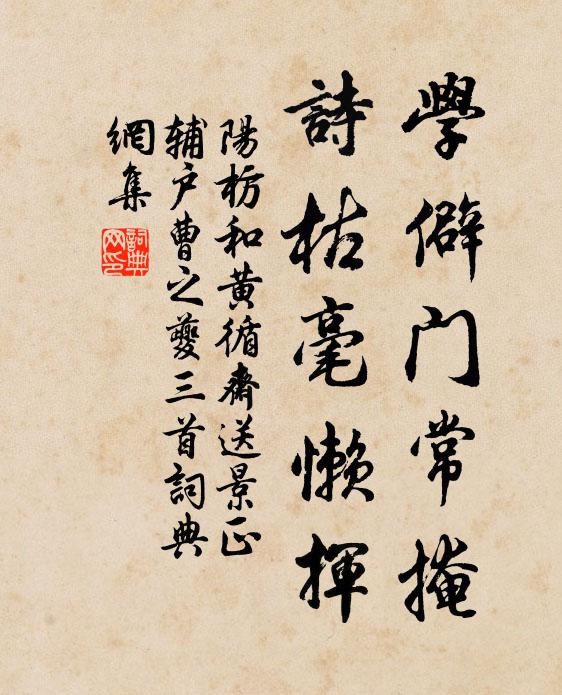 學僻門常掩
詩枯毫懶揮
陽枋和黃循齋送景正
輔戶曹之夔三首詞典
網集
詞典
网印